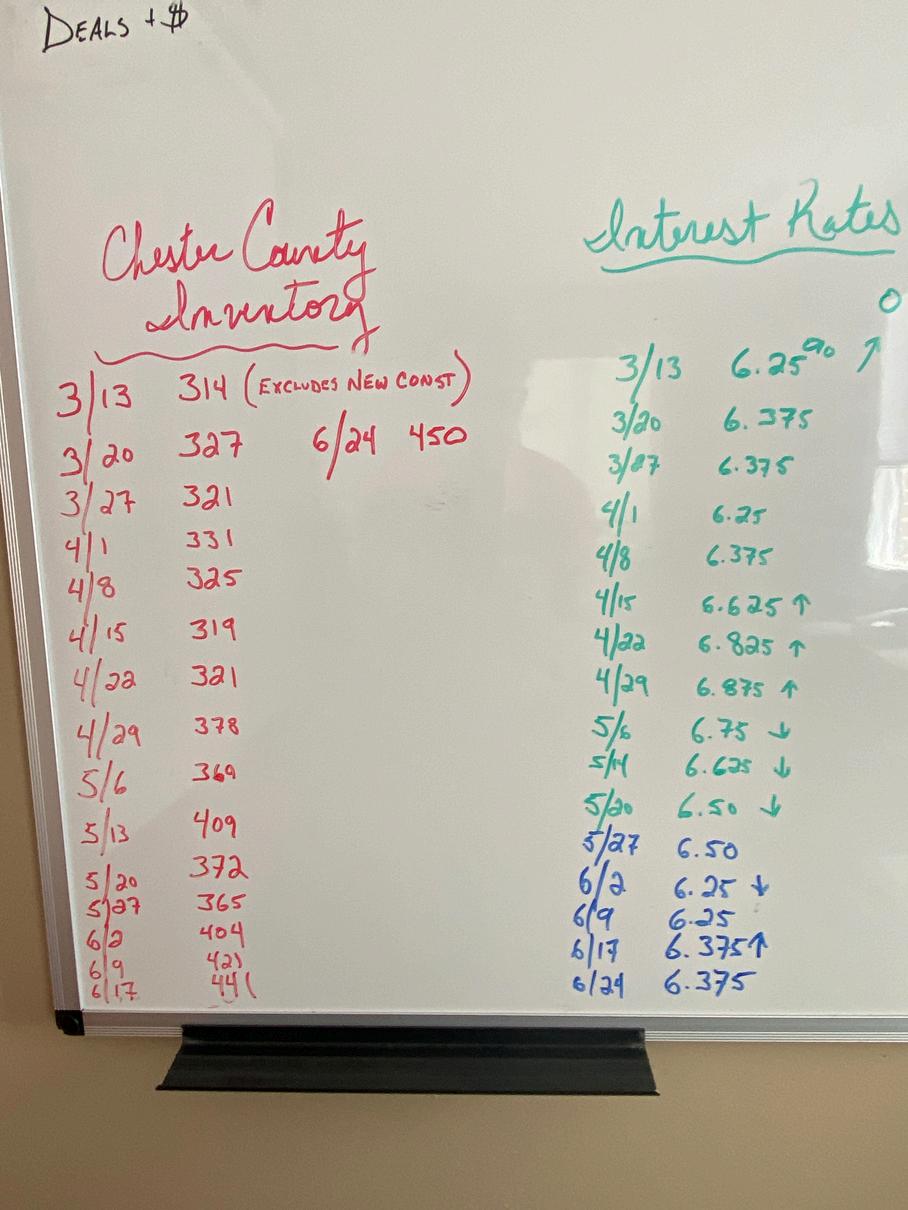 DEALS + $
Chester County
Inventory
3/13 314 (EXCLUDES NEW CONST)
3/20 327 6/24 450
3/27 321
4/1 331
4/8 325
4/15 319
4/22 321
4/29 378
5/6 369
5/13 409
5/20 372
5/27 365
6/2 404
6/9 421
6/17 441
Interest Rates
0
3/13 6.25% ↑
3/20 6.375
3/27 6.375
4/1 6.25
4/8 6.375
4/15 6.625 ↑
4/22 6.825 ↑
4/29 6.875 ↑
5/6 6.75 ↓
5/14 6.625 ↓
5/20 6.50 ↓
5/27 6.50
6/2 6.25 ↓
6/9 6.25
6/17 6.375 ↑
6/24 6.375